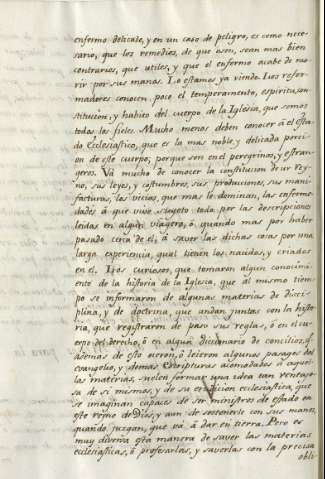 enfermo delicado, y en un caso de peligro, es como nece-
sario, que los remedios, de que usen, sean mas bien
contrarios, que utiles, y que el enfermo acabe de mo-
rir por sus manos. Lo estamos ya viendo. Los refor-
madores conocen poco el temperamento, espiritu, con-
stitucion, y habito del cuerpo de la Iglesia, que somos
todos los fieles. Mucho menos deben conocer à el esta-
do Ecclesiastico, que es la mas noble, y delicada porci-
on de este cuerpo; porque son en el peregrinos, y estran-
geros. Vá mucho de conocer la constitucion de un rey-
no, sus leyes, y costumbres, sus producciones, sus mani-
facturas, los vicios, que mas le dominan, las enferme-
dades á que vive sugeto: todo por las descripciones
leidas en algun viagero, ó quando mas por haber
pasado cerca de el; á saver las dichas cosas por una
larga experiencia, qual tienen los nacidos, y criados
en el. Los curiosos, que tomaron algun conocimi-
ento de la historia de la Iglesia, que al mismo tiem-
po se informaron de algunas materias de disci-
plina, y de doctrina, que andan juntas con la histo-
ria, que registraron de paso sus reglas, ó en el cu-
erpo del derecho, ó en algun diccionario de concilios, q.
ademas de esto oieron, ó leieron algunos pasages del
evangelio, y demas Escripturas acomodados á aque-
llas materias, suelen formar una idea tan ventajo-
sa de sí mismos, y de su erudicion ecclesiastica, que
se imaginan capaces de ser ministros de estado en
este reyno de Dios, y aun de sostenerle con sus manos,
quando juzgan, que vá á dar en tierra. Pero es
muy diversa esta manera de saver las materias
ecclesiasticas, ó profesarlas, y saverlas con la precisa
obli-